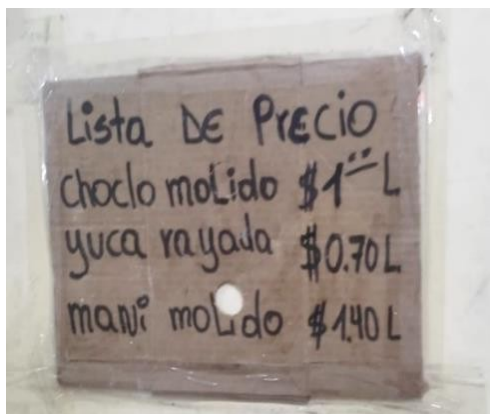 Lista DE PrEcio
choclo moLido $1.00 L
yuca rayada $0.70 L
maNi moLido $1.40 L